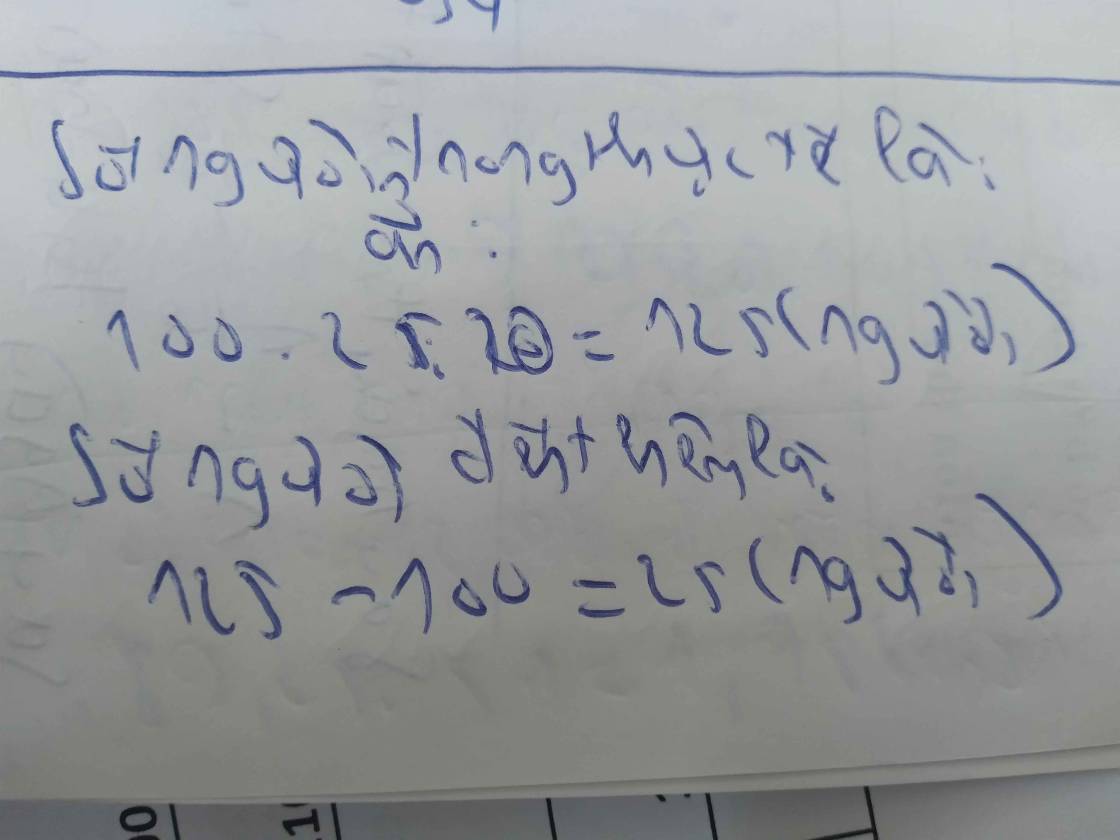 Số người trong thực tế là:
ăn :
100 . 25 : 20 = 125 (người)
Số người đến thêm là:
125 - 100 = 25 (người)